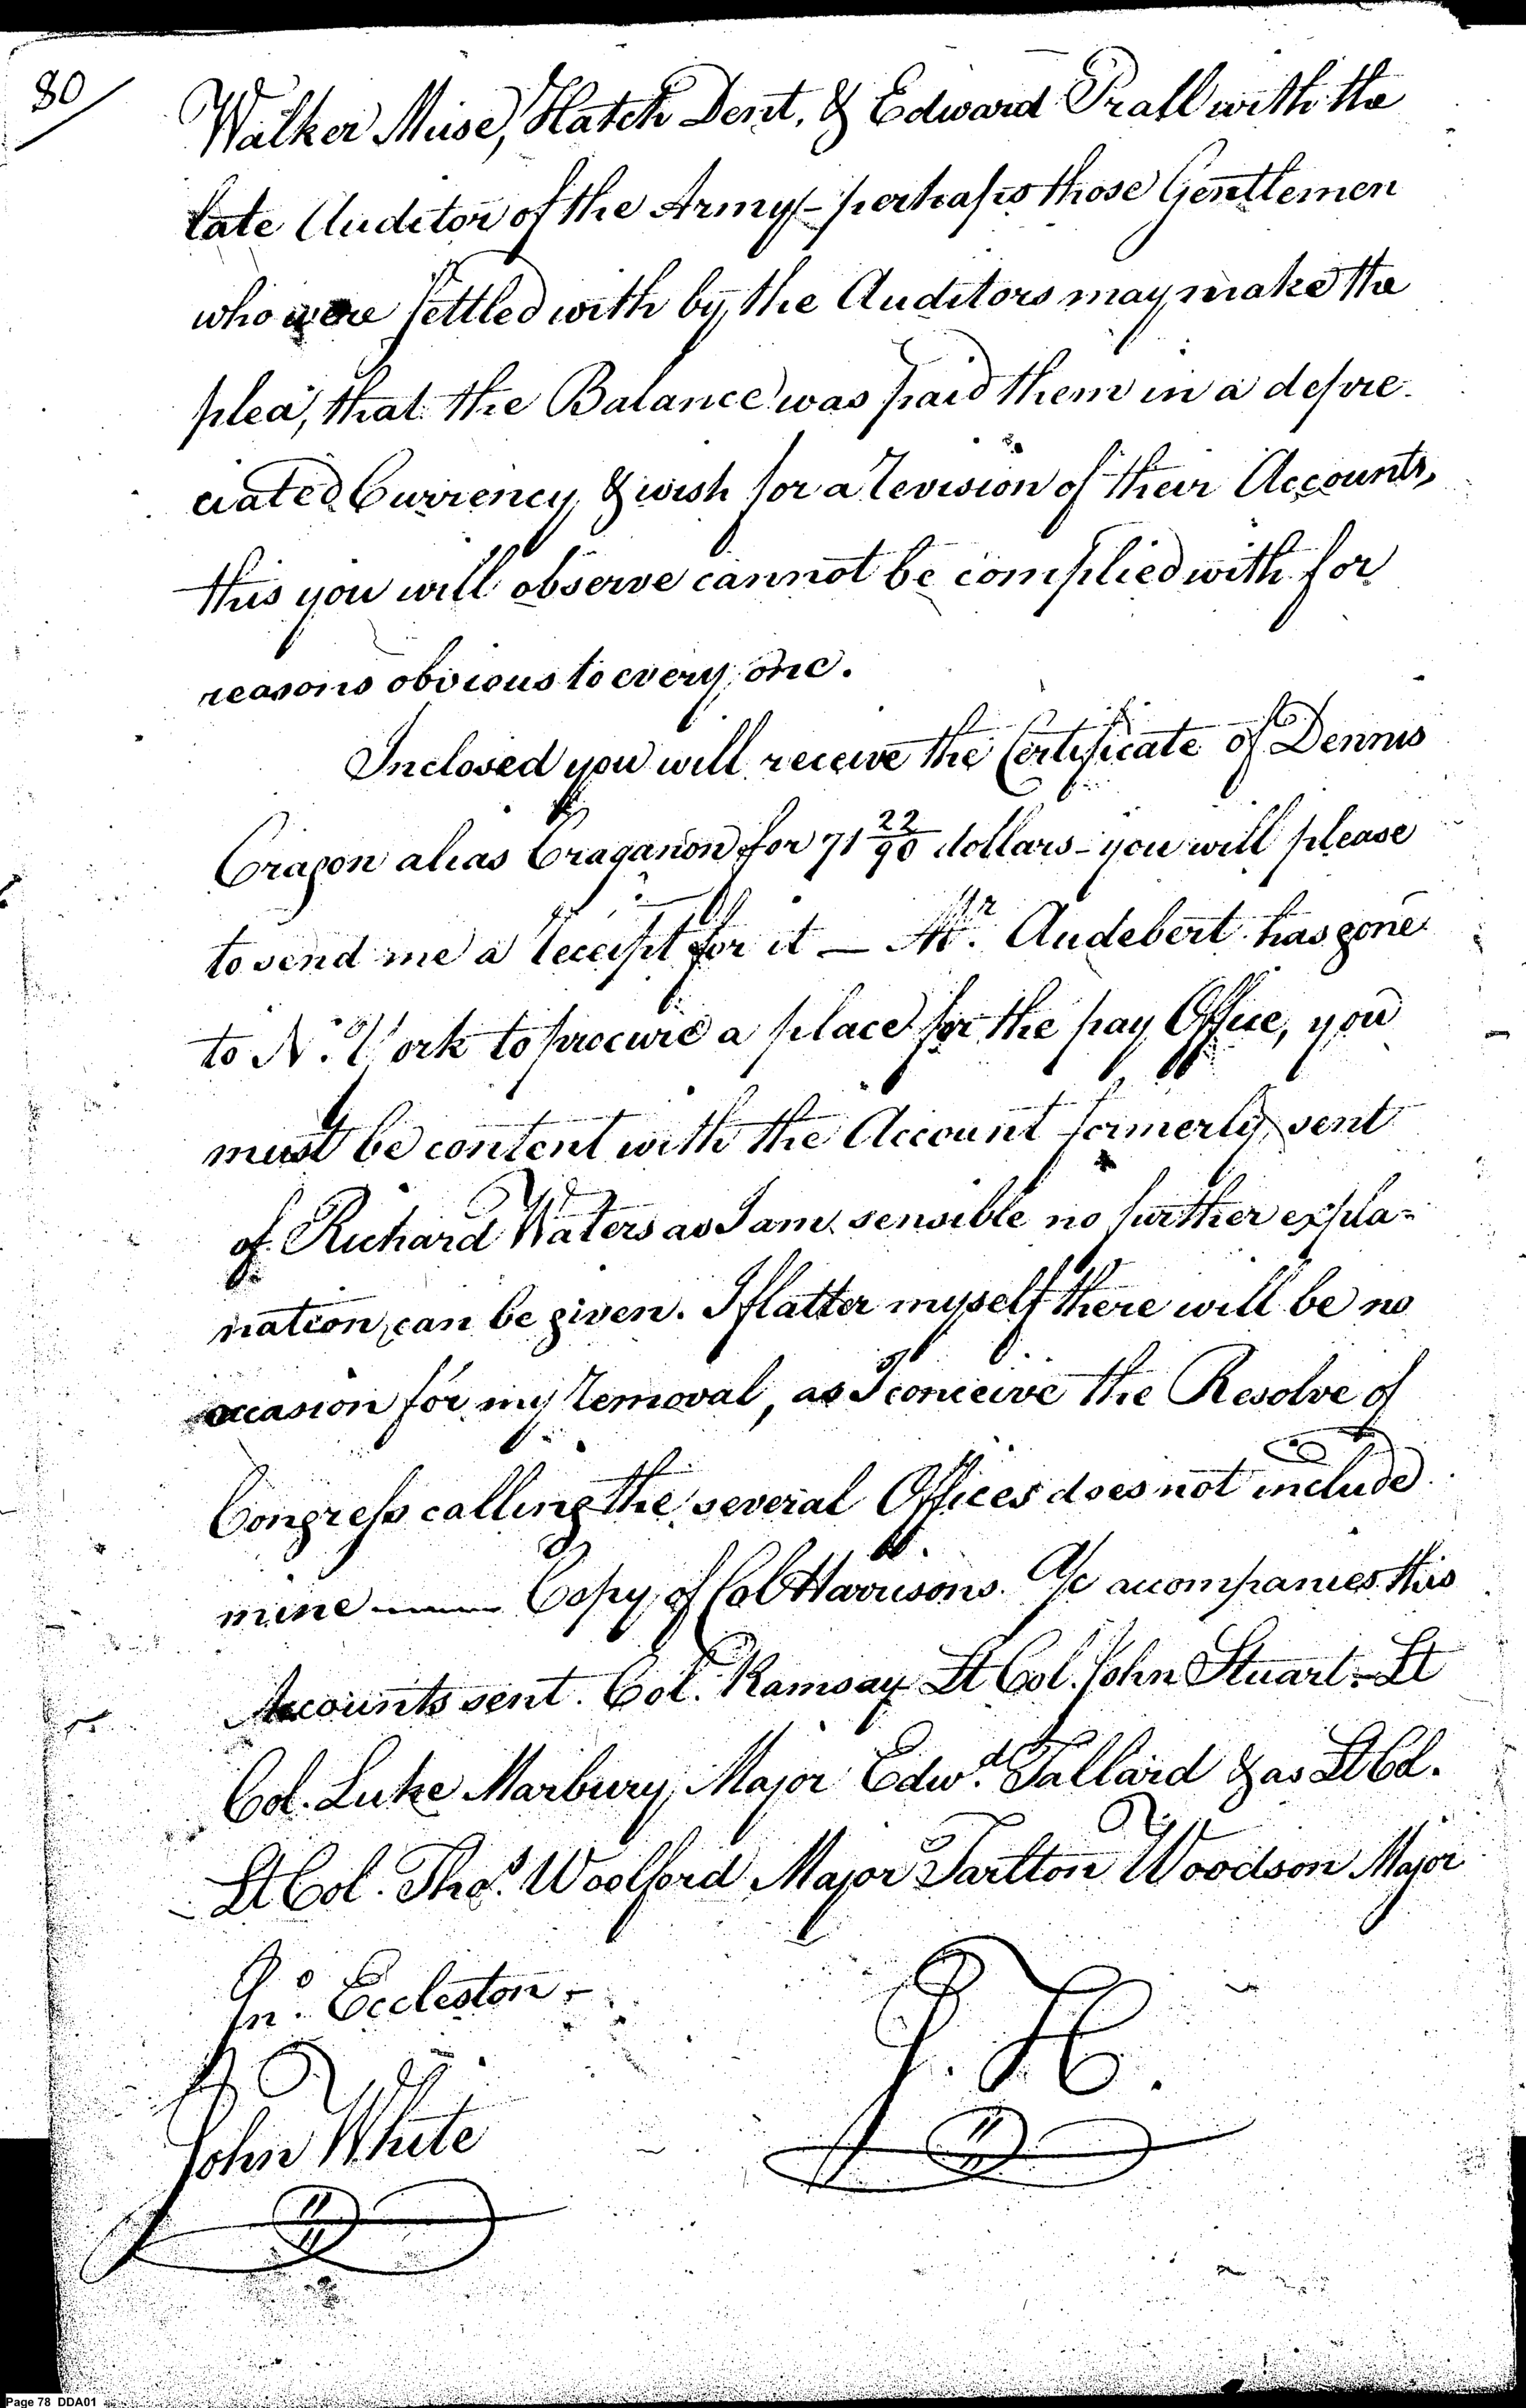 80
Walker Muse, Hatch Dent, & Edward Prall with the
late Auditor of the Army - perhaps those Gentlemen
who were settled with by the Auditors may make the
plea, that the Balance was paid them in a depre-
ciated Currency, & wish for a revision of their Accounts,
this you will observe cannot be complied with for
reasons obvious to every one.
Inclosed you will receive the Certificate of Dennis
Cragon alias Craganon for 71 22/90 dollars - you will please
to send me a receipt for it — Mr. Audebert has gone
to N. York to procure a place for the pay Office, you
must be content with the Account formerly sent
of Richard Waters as I am sensible no further expla=
nation can be given. I flatter myself there will be no
occasion for my removal, as I conceive the Resolve of
Congress calling the several Offices does not include
mine —— Copy of Col Harrisons A/c accompanies this
Accounts sent. Col. Ramsay Lt Col. John Stuart - Lt
Col. Luke Marbury, Major Edwd. Tallard & as Lt Col.
Lt Col. Thos. Woolford Major Tarlton Woodson Major
Jno. Eccleston -
J. H.
John White
Page 78 DDA01